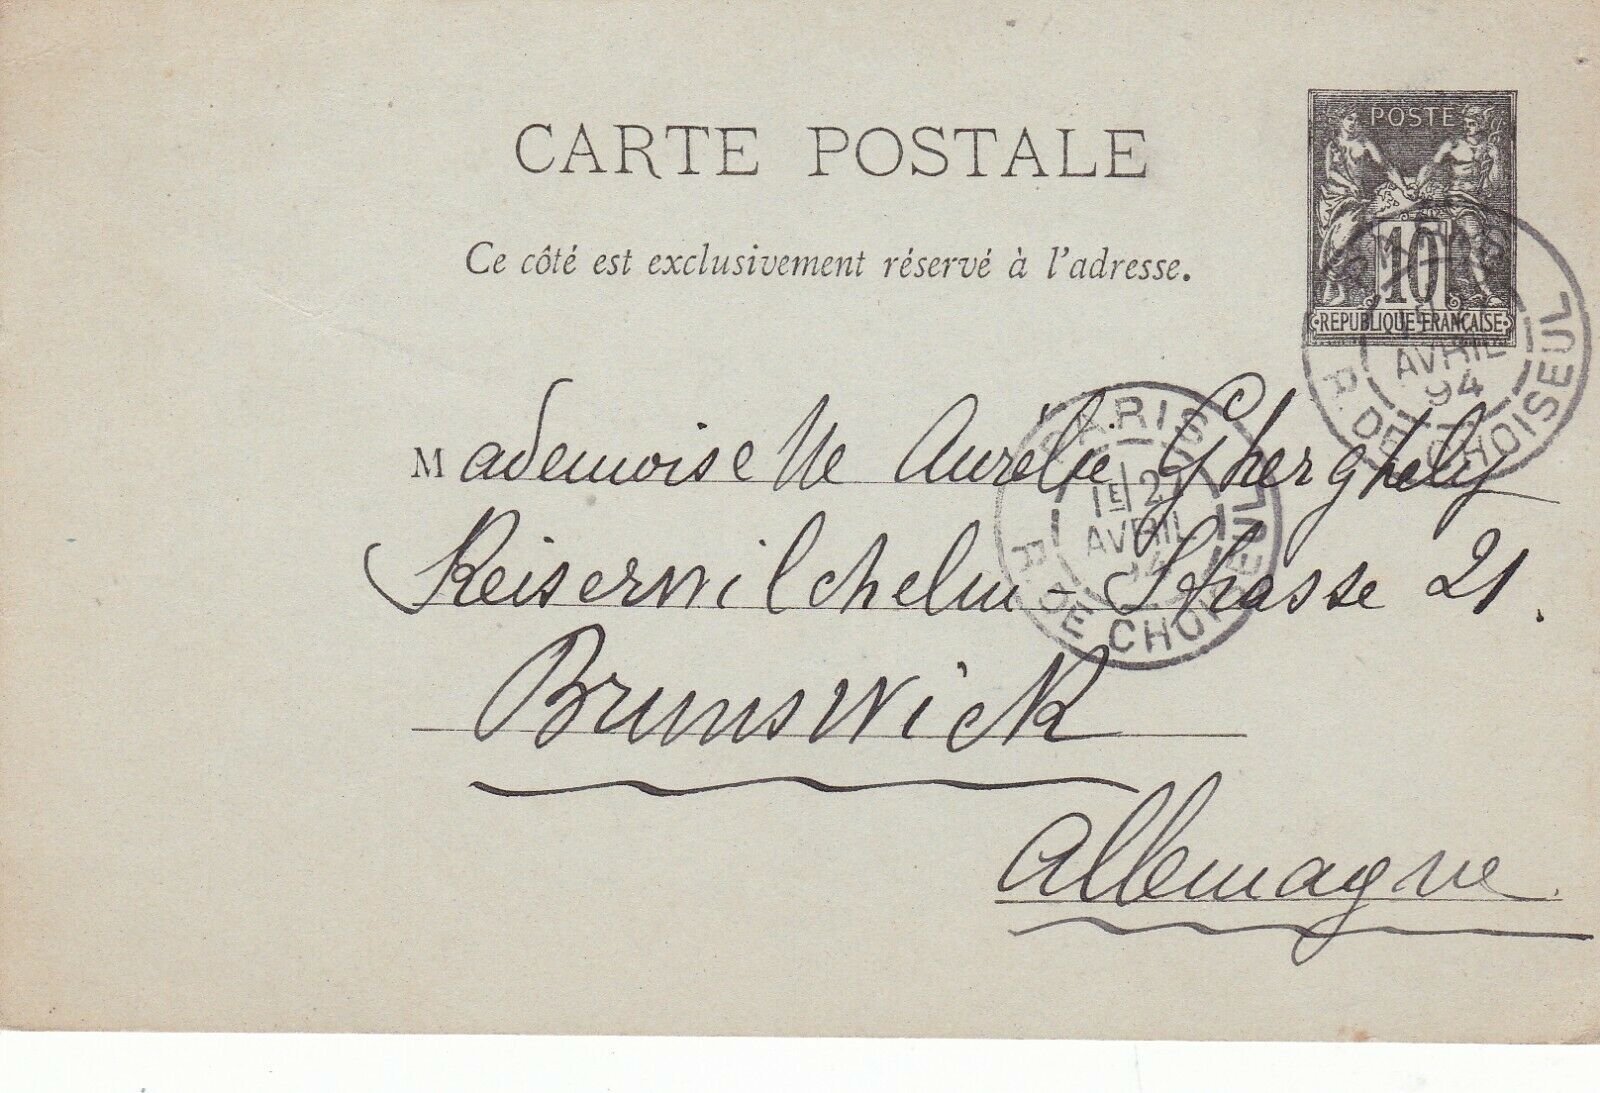 CARTE POSTALE
Ce côté est exclusivement réservé à l'adresse.
POSTE
10
REPUBLIQUE FRANCAISE
AVRIL
94
R. DE CHOISEUL
PARIS
1E 2
AVRIL
94
R. DE CHOISEUL
Mademoiselle Aurélie Gherghely
Keiserwilchelm-Strasse 21.
Brunswick
Allemagne.